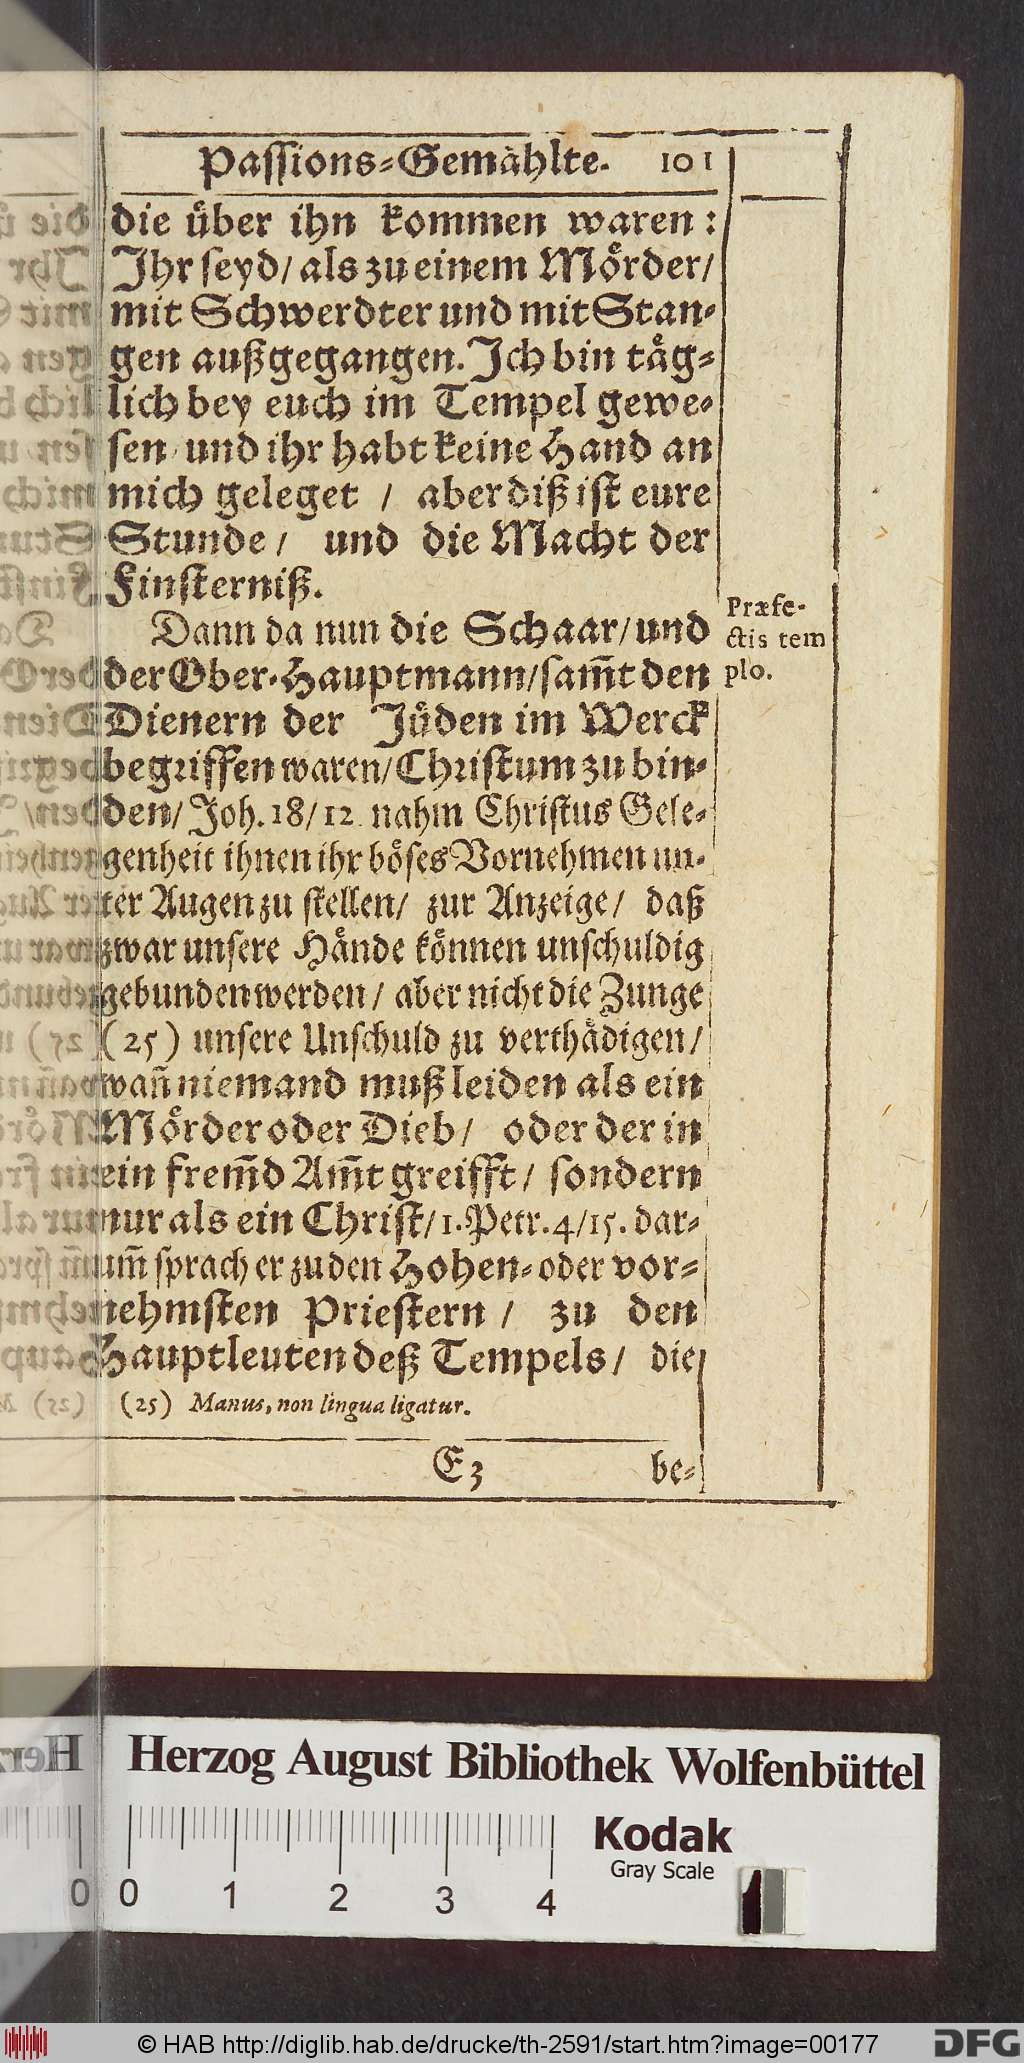 Passions-Gemählte. 101
die über ihn kommen waren:
Ihr seyd/ als zu einem Mörder/
mit Schwerdter und mit Stan-
gen außgegangen. Ich bin täg-
lich bey euch im Tempel gewe-
sen und ihr habt keine Hand an
mich geleget / aber diß ist eure
Stunde / und die Macht der
Finsterniß.
Dann da nun die Schaar/ und
der Ober-Hauptmann/ sam̃t den
Dienern der Jüden im Werck
begriffen waren/ Christum zu bin-
den/ Joh. 18/ 12 nahm Christus Gele-
genheit ihnen ihr böses Vornehmen un-
ter Augen zu stellen/ zur Anzeige / daß
zwar unsere Hände können unschuldig
gebunden werden / aber nicht die Zunge
(25) unsere Unschuld zu verthädigen /
wañ niemand muß leiden als ein
Mörder oder Dieb / oder der in
ein frem̃d Am̃t greifft / sondern
nur als ein Christ/ 1. Petr. 4/ 15. dar-
um̃ sprach er zu den Hohen- oder vor-
nehmsten Priestern / zu den
Hauptleuten deß Tempels / die
Præfe-
ctis tem
plo.
(25) Manus, non lingua ligatur.
E 3 be-
Herzog August Bibliothek Wolfenbüttel
0 1 2 3 4
Kodak
Gray Scale
© HAB http://diglib.hab.de/drucke/th-2591/start.htm?image=00177
DFG